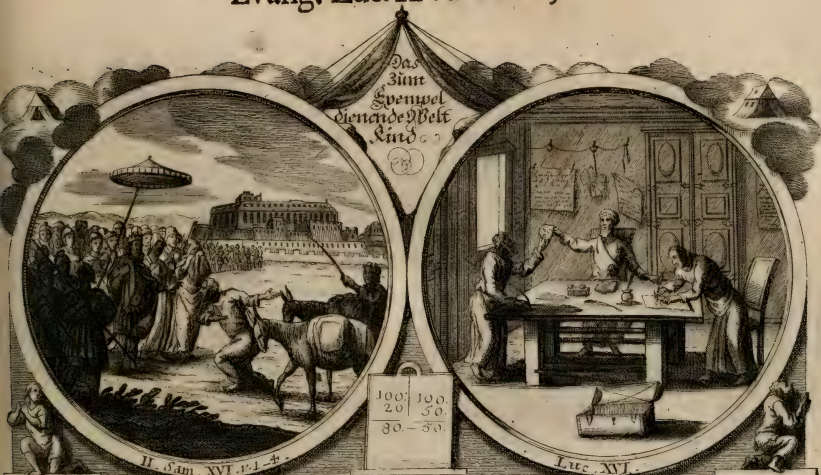 Evang. Luc.
Das
zum
Exempel
dienende Welt
Kind
100. 100.
20 50.
80. – 50.
II. Sam. XVI. v. 1-4.
Luc. XVI.